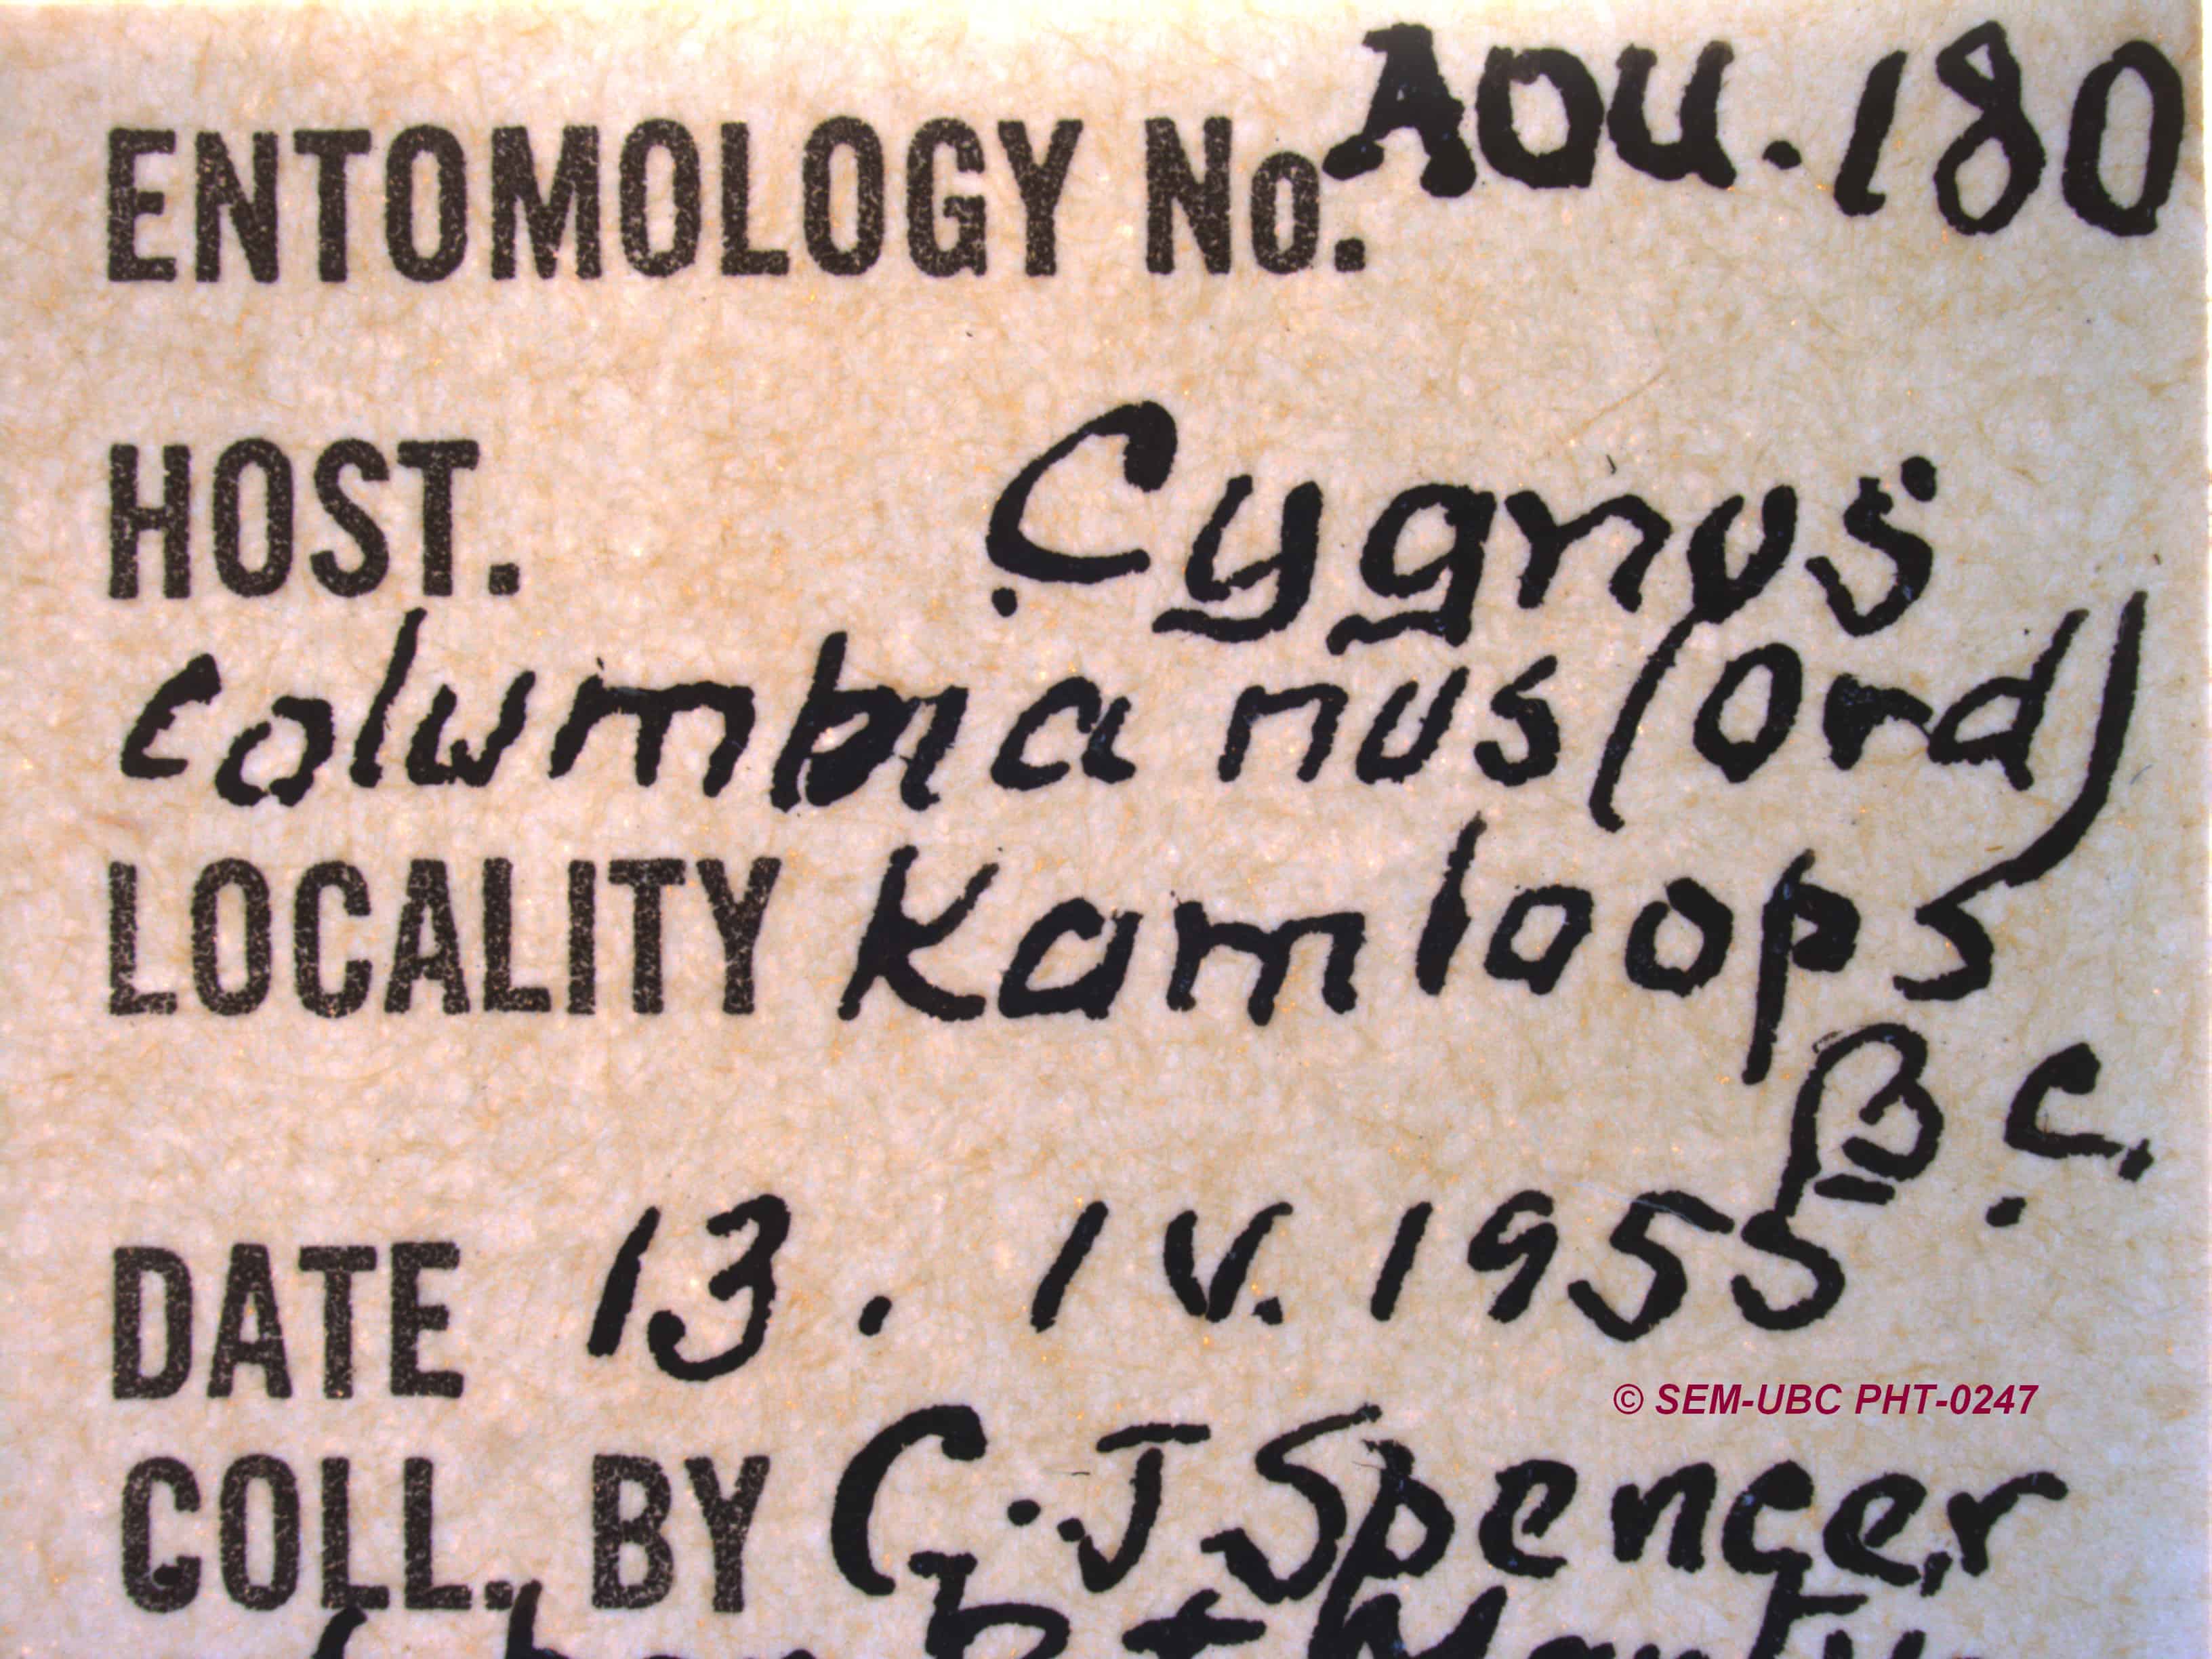 ENTOMOLOGY No. AOU. 180
HOST. Cygnus
columbianus (Ord)
LOCALITY Kamloops
B.C.
DATE 13. IV. 1955
© SEM-UBC PHT-0247
COLL. BY G. J Spencer